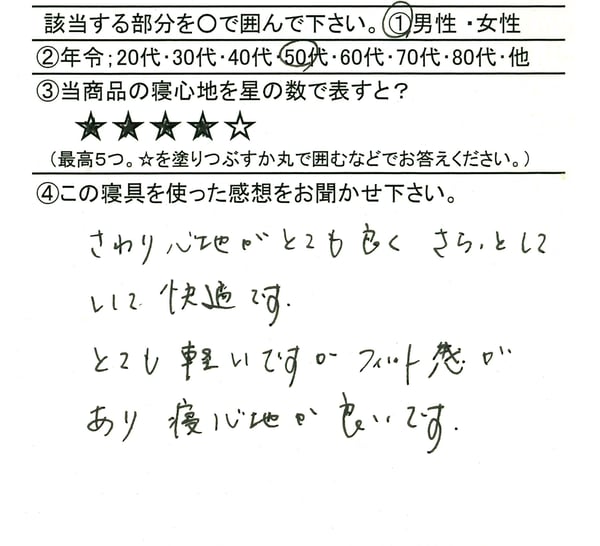 該当する部分を〇で囲んで下さい。①男性・女性
②年令;20代・30代・40代・50代・60代・70代・80代・他
③当商品の寝心地を星の数で表すと?
★★★★☆
(最高5つ。☆を塗りつぶすか丸で囲むなどでお答えください。)
④この寝具を使った感想をお聞かせ下さい。
さわり心地がとても良く さらっとして
いて快適です.
とても軽いですが フィット感が
あり 寝心地が良いです.